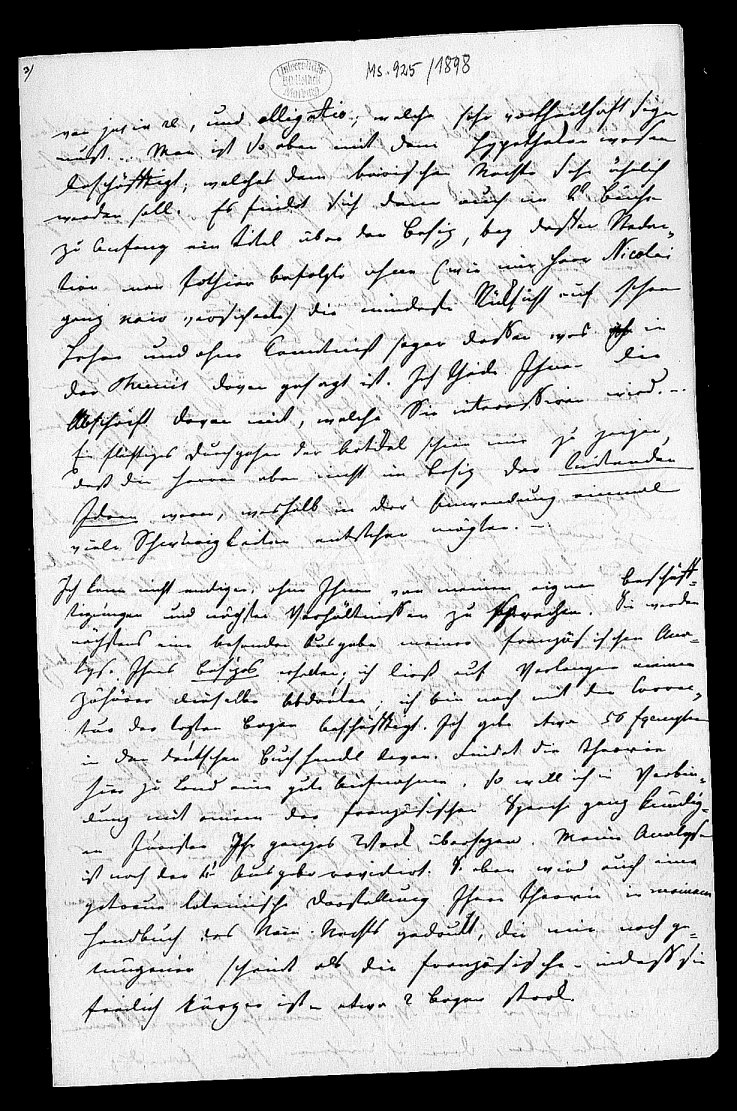 3)
Universitäts-Bibliothek Marburg
Ms. 925/1898
von jus in re, und obligatio, welche sehr vortheilhaft seyn
muß... Man ist so eben mit dem Hypothekenwesen
beschäfftigt, welches dem baierischen Rechte sehr ähnlich
werden soll. Es findet sich denn auch im Buche
zu Anfang ein Titel über den Besitz, bey dessen Redac-
tion man Pothier befolgte ohne (wie mir Herr Nicolai
ganz naiv versicherte) die mindeste Rücksicht auf Ihre
Lehre und ohne Kenntniß sogar dessen was in
der Themis davon gesagt ist. Ich theile Ihnen die
Abschrift davon mit, welche Sie interessiren wird. –
Ein flüchtiges Durchgehen der Artikel schien mir zu zeigen
daß die Herren eben nicht im Besitz der leitenden
Ideen waren, weshalb in der Anwendung einmal
viele Schwierigkeiten entstehen möchten. –
Ich kann nicht endigen, ohne Ihnen von meinen eignen Beschäff-
tigungen und nächsten Verhältnissen zu sprechen. Sie werden
nächstens eine besondere Ausgabe meiner französischen Ana-
lyse Ihres Besitzes erhalten; ich ließ auf Verlangen meiner
Zuhörer dieselbe abdrucken, ich bin noch mit der Correc-
tur der letzten Bogen beschäfftigt. Ich gebe etwa 50 Exemplare
in den deutschen Buchhandel. Findet die Theorie
hier zu Land eine gute Aufnahme, so will ich in Verbin-
dung mit einem der französischen Sprache ganz kundig-
en Juristen Ihr ganzes Werk übersetzen. Meine Analyse
ist nach der Ausgabe revidirt. So eben wird auch eine
getreue lateinische Darstellung Ihrer Theorie in meinem
Handbuch des Röm. Rechts gedruckt, die mir noch ge-
lungener scheint als die französische – indeß sie
freilich kürzer ist – etwa 2 Bogen stark